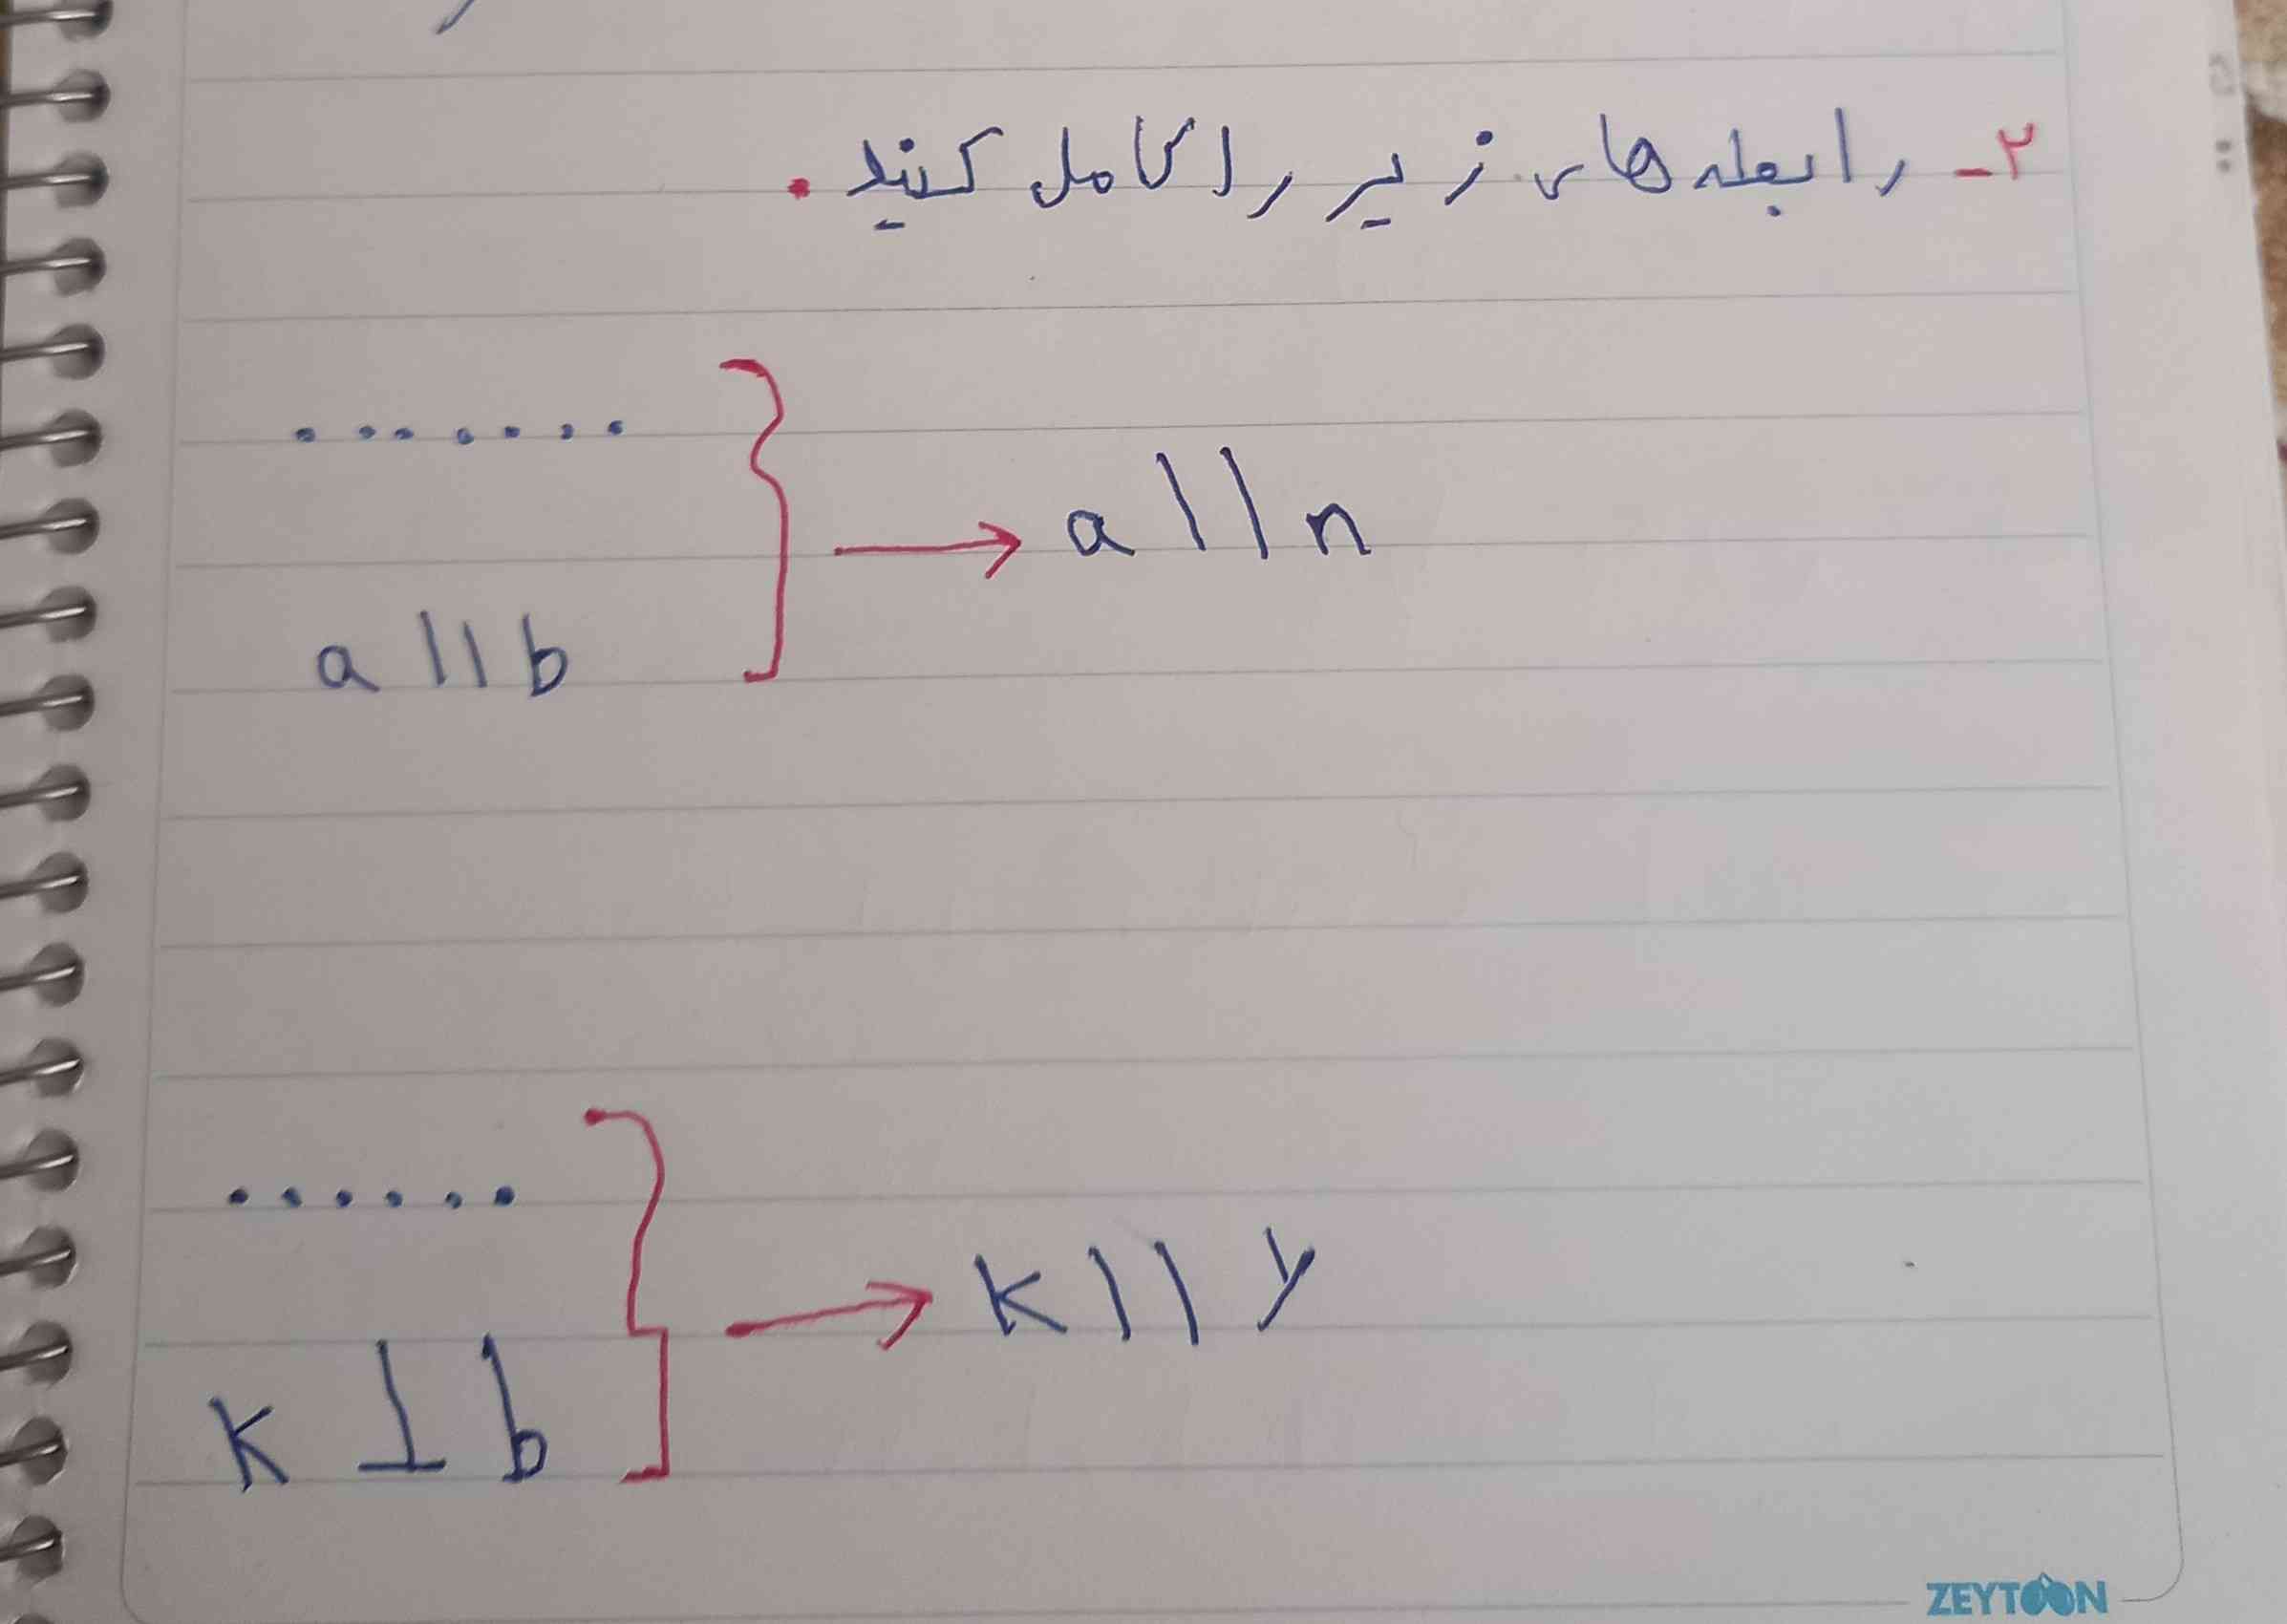 ۲- رابطه های زیر را کامل کنید.
.......
a || n
a || b
......
k || y
k ⊥ b
ZEYTOON